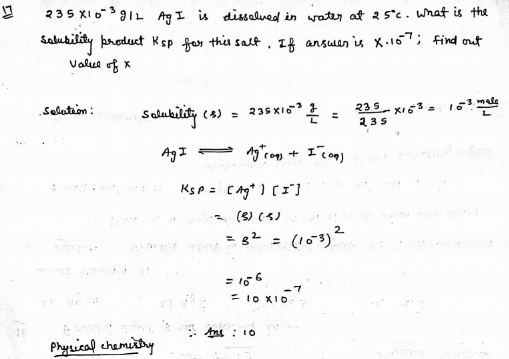 17 235 X10⁻³ g/L AgI is dissolved in water at 25°c. What is the
Solubility product Ksp for this salt. If answer is X.10⁻⁷; find out
value of x
Solution: Solubility (s) = 235×10⁻³ g/L = 235/235 ×10⁻³ = 10⁻³ mole/L
AgI ⇌ Ag⁺(aq) + I⁻(aq)
Ksp = [Ag⁺] [I⁻]
= (s) (s)
= s² = (10⁻³)²
= 10⁻⁶
= 10 ×10⁻⁷
∴ Ans : 10
Physical chemistry